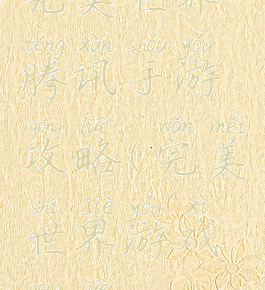 完美世界
téng xùn shǒu yóu
腾讯手游
gōng lüè wán měi
攻略(完美
shì jiè yóu xì
世界游戏
gōng lüè